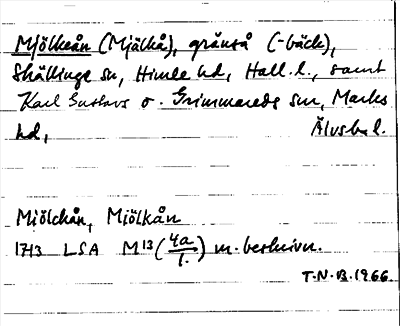 Mjölkeån (Mjälkå), gränså (-bäck),
Skällinge sn, Himle hd, Hall. l., samt
Karl Gustavs o. Grimmareds snr, Marks
hd, Älvsb. l.
Miölchån, Miölkån
1713 LSA M13 (4a/1.) m. beskrivn.
T.N.B. 1966.